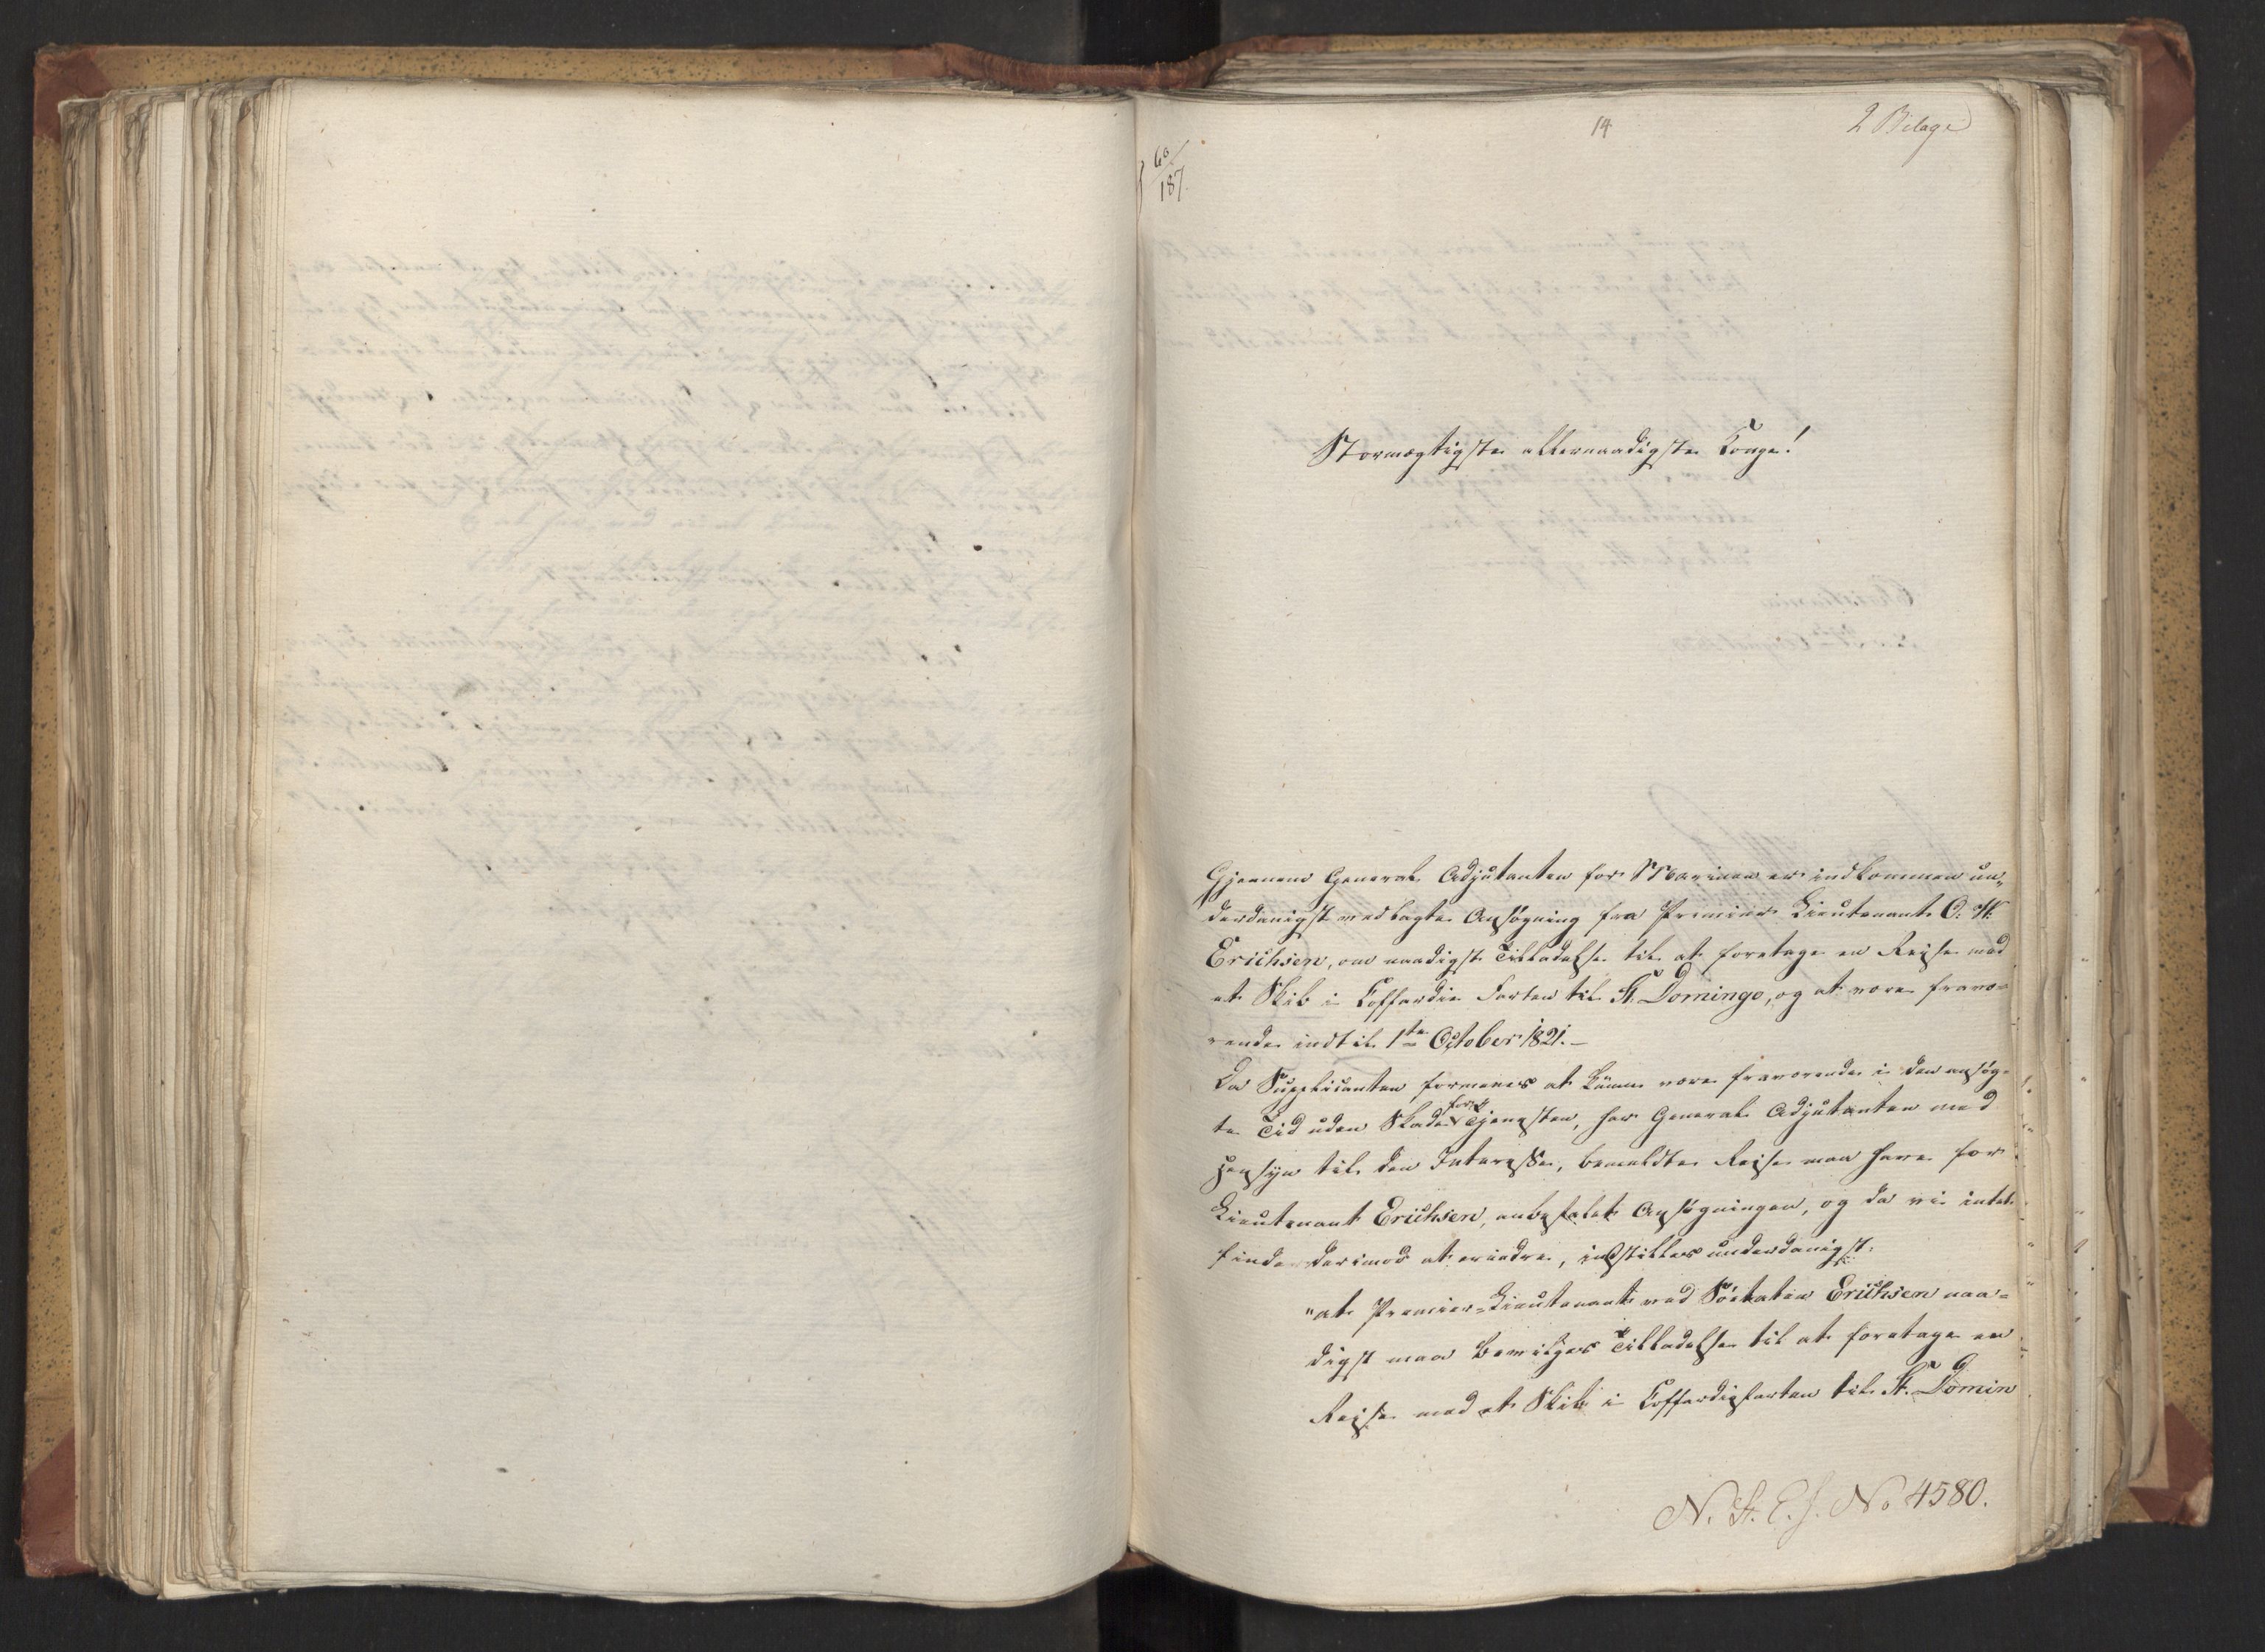 14
2 Bilage
60/187.
Stormægtigste allernaadigste Konge!
Gjennem General Adjutanten for Marinen er indkommen un„
derdanigst vedlagte Ansøgning fra Premier Lieutenant O. W.
Erichsen, om naadigst Tilladelse til at foretage en Rejse med
et Skib i Coffardie Farten til St. Domingo, og at være fravæ-
rende indtil 1te October 1821.-
Da Supplicanten formenes at kunne være fraværende i den ansøg-
te Tid uden Skade for Tjenesten, har General Adjutanten med
Hensyn til den Interesse, bemeldte Rejse maa have for
Lieutenant Erichsen, anbefalet Ansøgningen, og da vi intet
finde derimod at erindre, indstilles underdanigst:
"at Premier-Lieutenant ved Søetaten Erichsen naa-
digst maa bevilges Tilladelse til at foretage en
Rejse med et Skib i Coffardiefarten til St. Domin
N. St. E. J. No 4580.